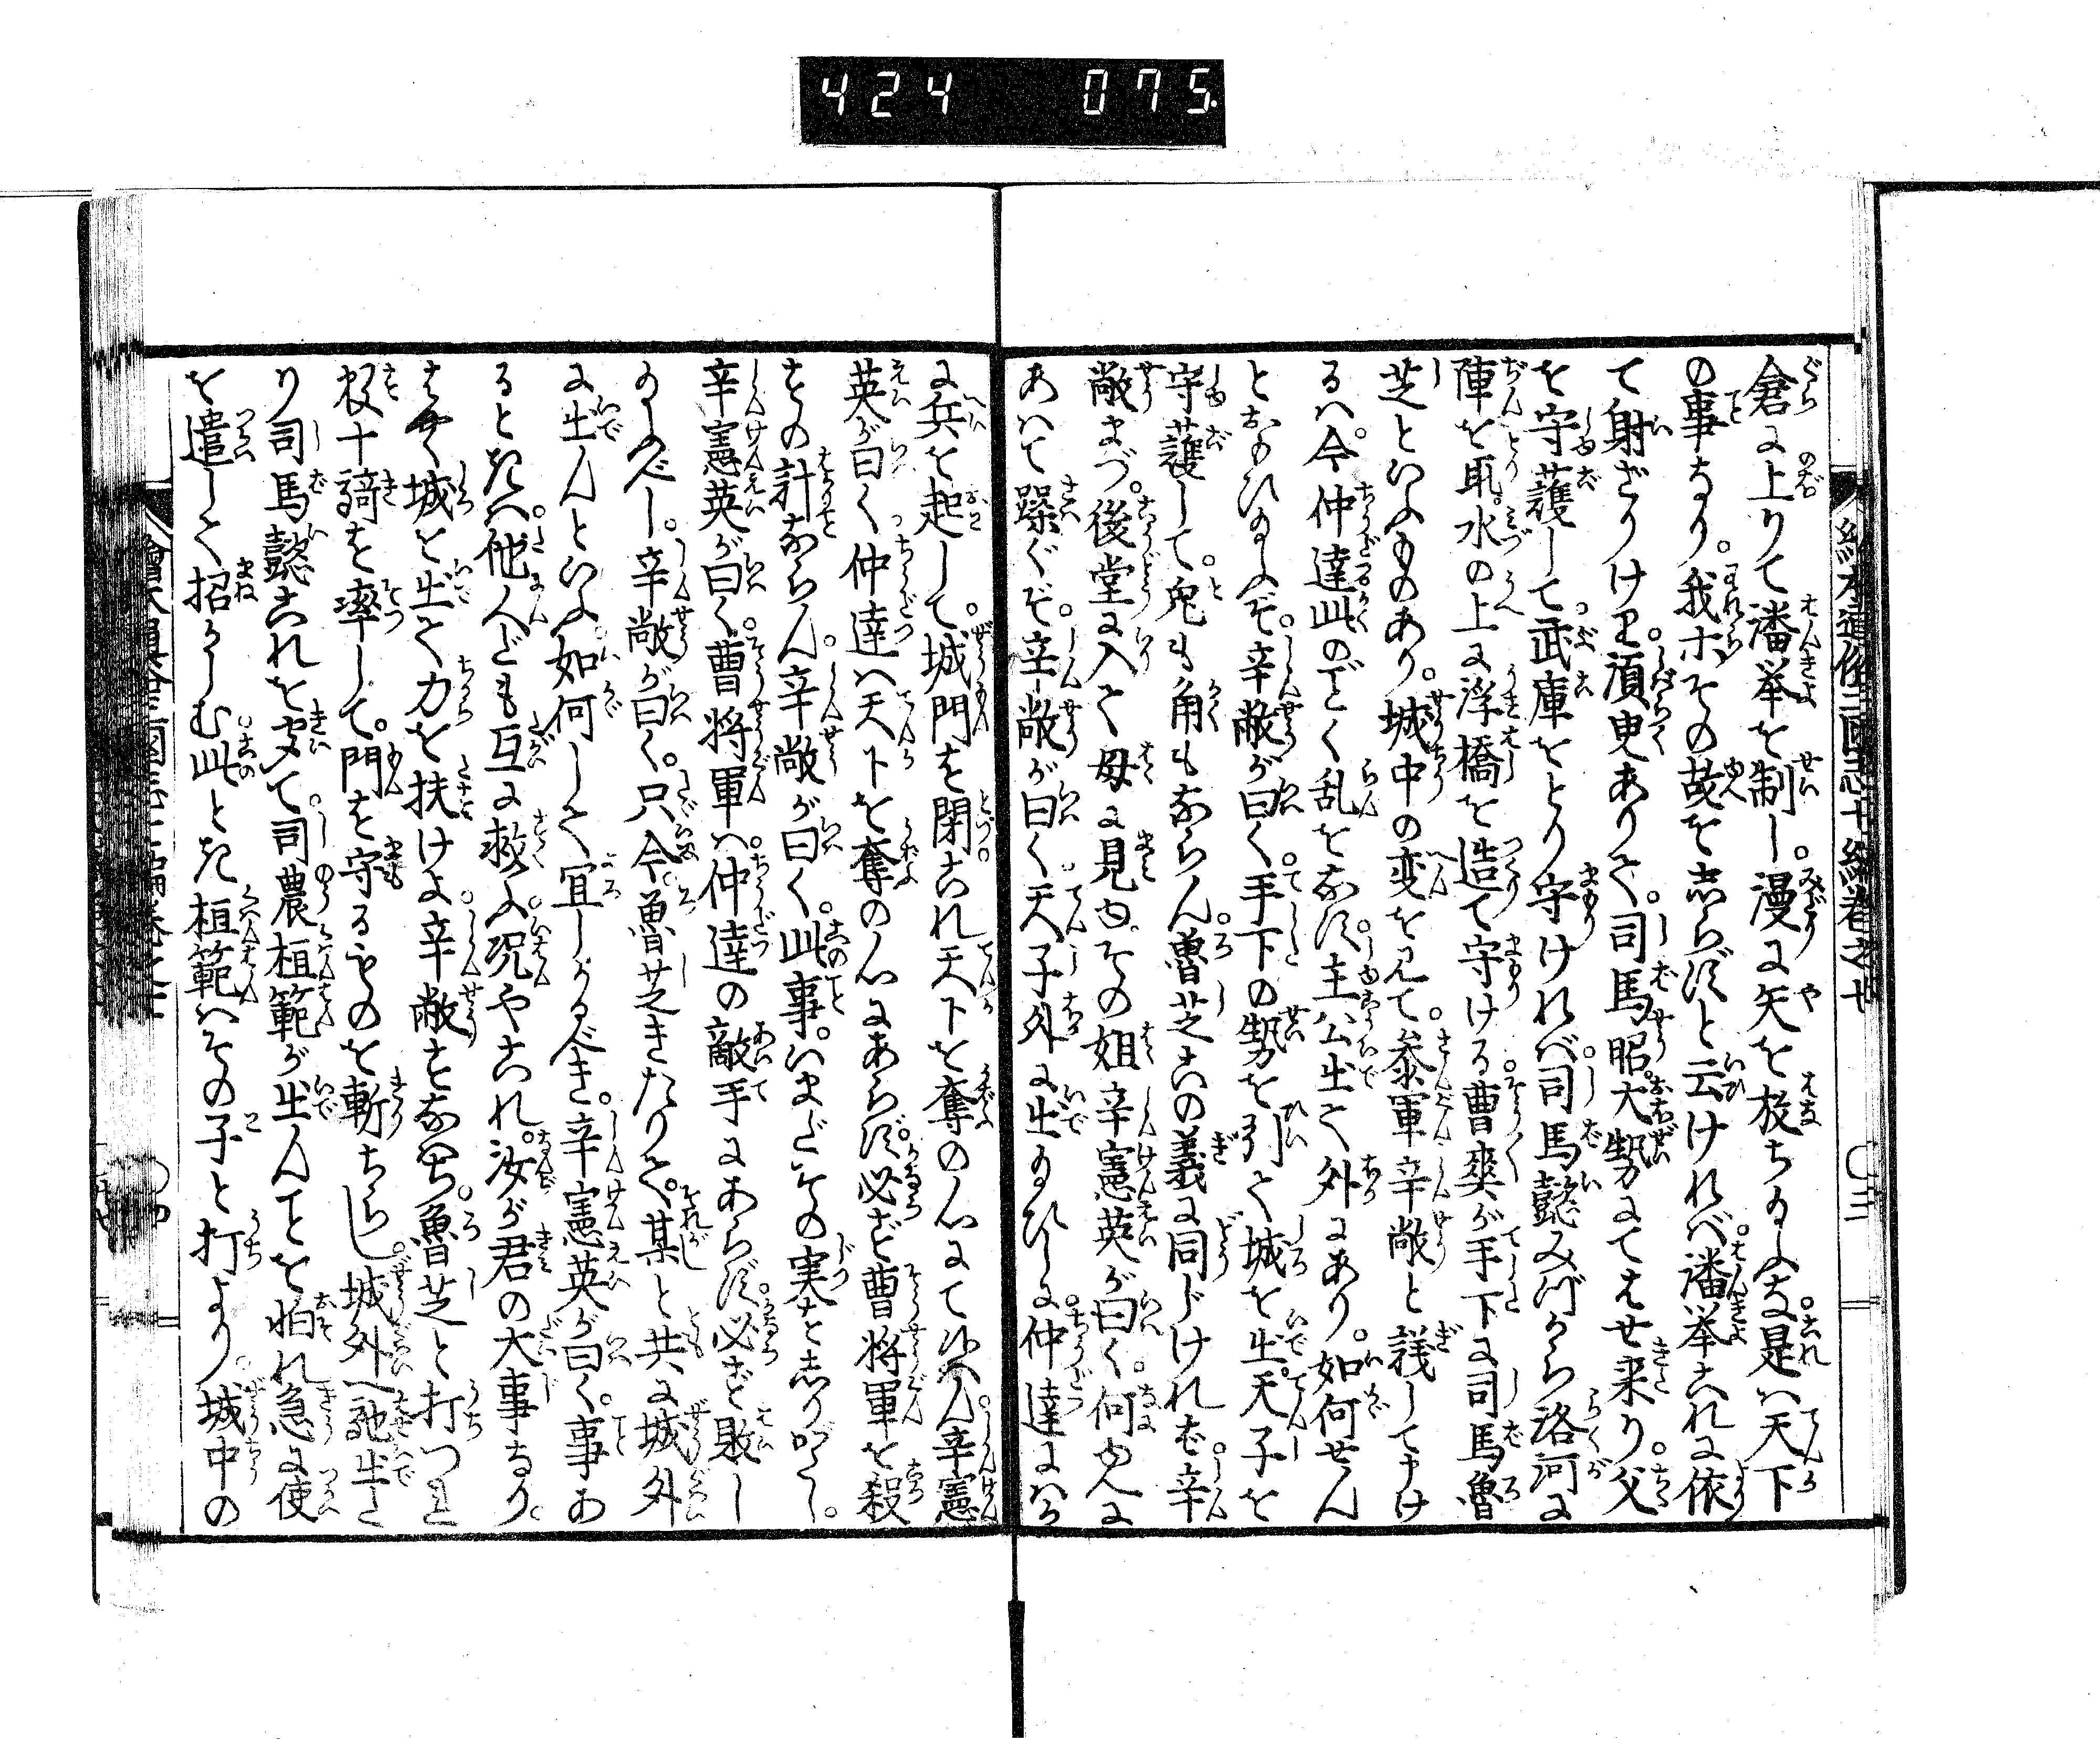 424 075
倉に上りて潘挙を制し。漫に矢を放ち給ふな。是は天下
の事なり。我ホその故をしらずと云ければ。潘挙これに依
て射ざりけり。須臾ありて。司馬昭大勢にてはせ来り。父
を守護して。武庫をとり守ければ。司馬懿みづから洛河に
陣を取。水の上に浮橋を造て守ける。曹爽が手下に司馬魯
芝といふものあり。城中の変を見て。参軍辛敞と議して申け
るは。今仲達此のごとく乱をなす。主公出て外にあり。如何せん
とおもひ給ふぞ。辛敞が曰く。手下の勢を引て城を出。天子を
守護して。兎も角もならん。魯芝この義に同じければ。辛
敞まづ。後堂に入て母に見ゆ。その姐辛憲英が曰く。何ゆへに
あはて躁ぐぞ。辛敞が曰く。天子外に出給ひしに。仲達にはか
に兵を起して。城門を閉。これ天下を奪の心にて候はん。辛憲
英が曰く。仲達は天下を奪の心にあらず。必ず曹将軍を殺
すの計ならん。辛敞が曰く。此事。いまだその実をしりがたし。
辛憲英が曰く。曹将軍は。仲達の敵手にあらず。必ず敗し
給ふべし。辛敞が曰く。只今魯芝きたりて。某と共に城外
に出んといふ。如何して宜しかるべき。辛憲英が曰く。事あ
るときは。他人ども互に救ふ。况やこれ。汝が君の大事なり。
はやく城を出て力を扶けよ。辛敞すなはち。魯芝と打つれ
数十騎を率して。門を守るものを斬ちらし。城外へ馳出た
り。司馬懿これを聞て。司農桓範が出んことを怕れ。急に使
を遣して招かしむ。此とき桓範はその子と打より。城中の